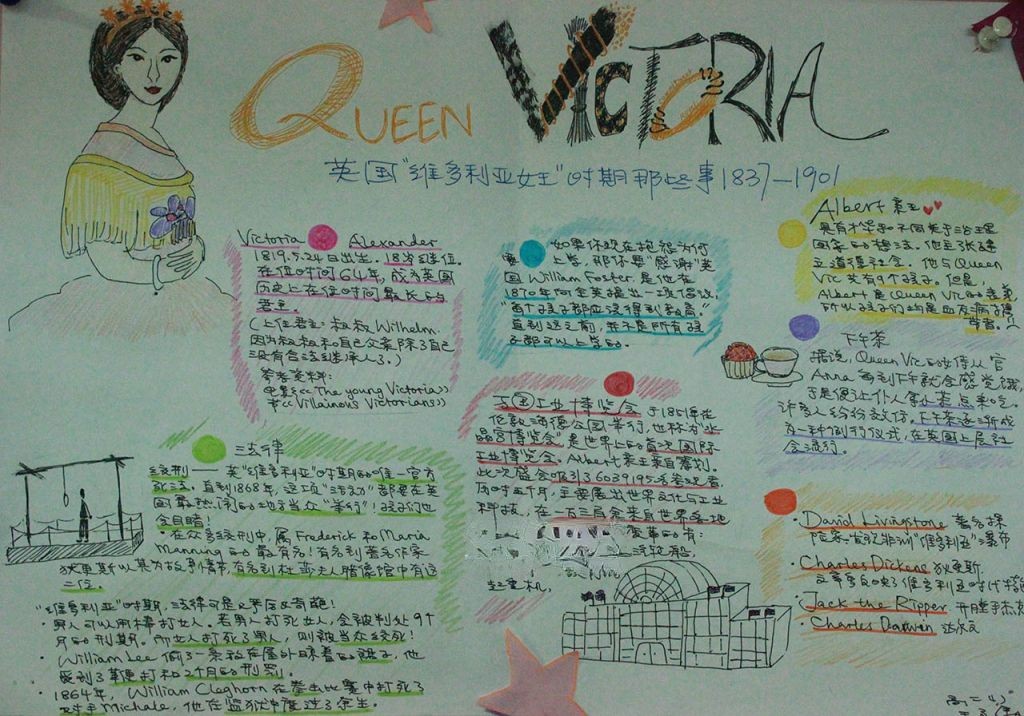 QUEEN VICTORIA
英国"维多利亚女王"时期那些事1837—1901
Victoria Alexander
1819.5.24日出生. 18岁继位.
在位时间64年, 成为英国
历史上在位时间最长的
君主.
(上任君主: 叔叔Wilhelm.
因为叔叔和自己父亲除了自己
没有合法继承人了.)
参考资料:
电影《The young Victoria》
书《Villainous Victorians》
如果你现在抱怨为何
要上学, 那你要"感谢"英
国William Foster, 是他在
1870年向全英提出一项倡议,
"每个孩子都应该得到教育."
直到这之前, 并不是所有孩
子都可以上学的.
Albert 亲王
具有才华和不同关于治理
国家的想法. 他主张建
立道德社会. 他与Queen
Vic 共有9个孩子. 但是,
Albert是Queen Vic的表弟,
所以孩子们均是血友病携
带者.
下午茶
据说, Queen Vic的女侍从官
Anna 每到下午就会感觉饿,
于是便让仆人拿小茶点来吃.
许多人纷纷效仿. 下午茶逐渐成
为一种例行仪式, 在英国上层社
会流行.
万国工业博览会 于1851年在
伦敦海德公园举行, 也称为"水
晶宫博览会" 是世界上的首次国际
工业博览会. Albert亲王亲自筹划.
此次盛会吸引了6039195名参观者.
历时五个月, 主要展出世界文化与工业
科技, 在一万三 来自世界各地
的有:
起重机,
法律
绞刑—— 英"维多利亚"时期的唯一官方
死法. 直到1868年, 这项"活动"都要在英
国最热闹的地方当众"举行"! 孩子们也
会目睹!
· 在众多绞刑中, 属Frederick和Maria
Manning的最有名! 有名到著名作家
狄更斯以其为故事情节, 有名到杜莎夫人腊像馆中有这
二位.
"维多利亚"时期, 法律可是又严厉又奇葩!
· 男人可以用棒打女人. 若男人打死女人, 会被判处9个
月的刑期. 而女人打死了男人, 则被当众绞死!
· William Lee 偷了一条放在屋外晾着的裙子, 他
受到了鞭打和2个月的刑罚.
· 1864年, William Cleghorn在拳击比赛中打死了
对手Michale, 他在监狱中度过了余生.
· David Livingstone 著名探
险家 发现非洲"维多利亚"瀑布
· Charles Dickens 狄更斯
文章多反映了维多利亚时代
· Jack the Ripper 开膛手杰克
· Charles Darwin 达尔文